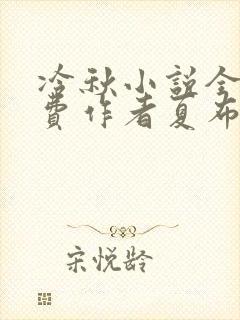 冷秋小说全
费作者夏布
宋悦龄